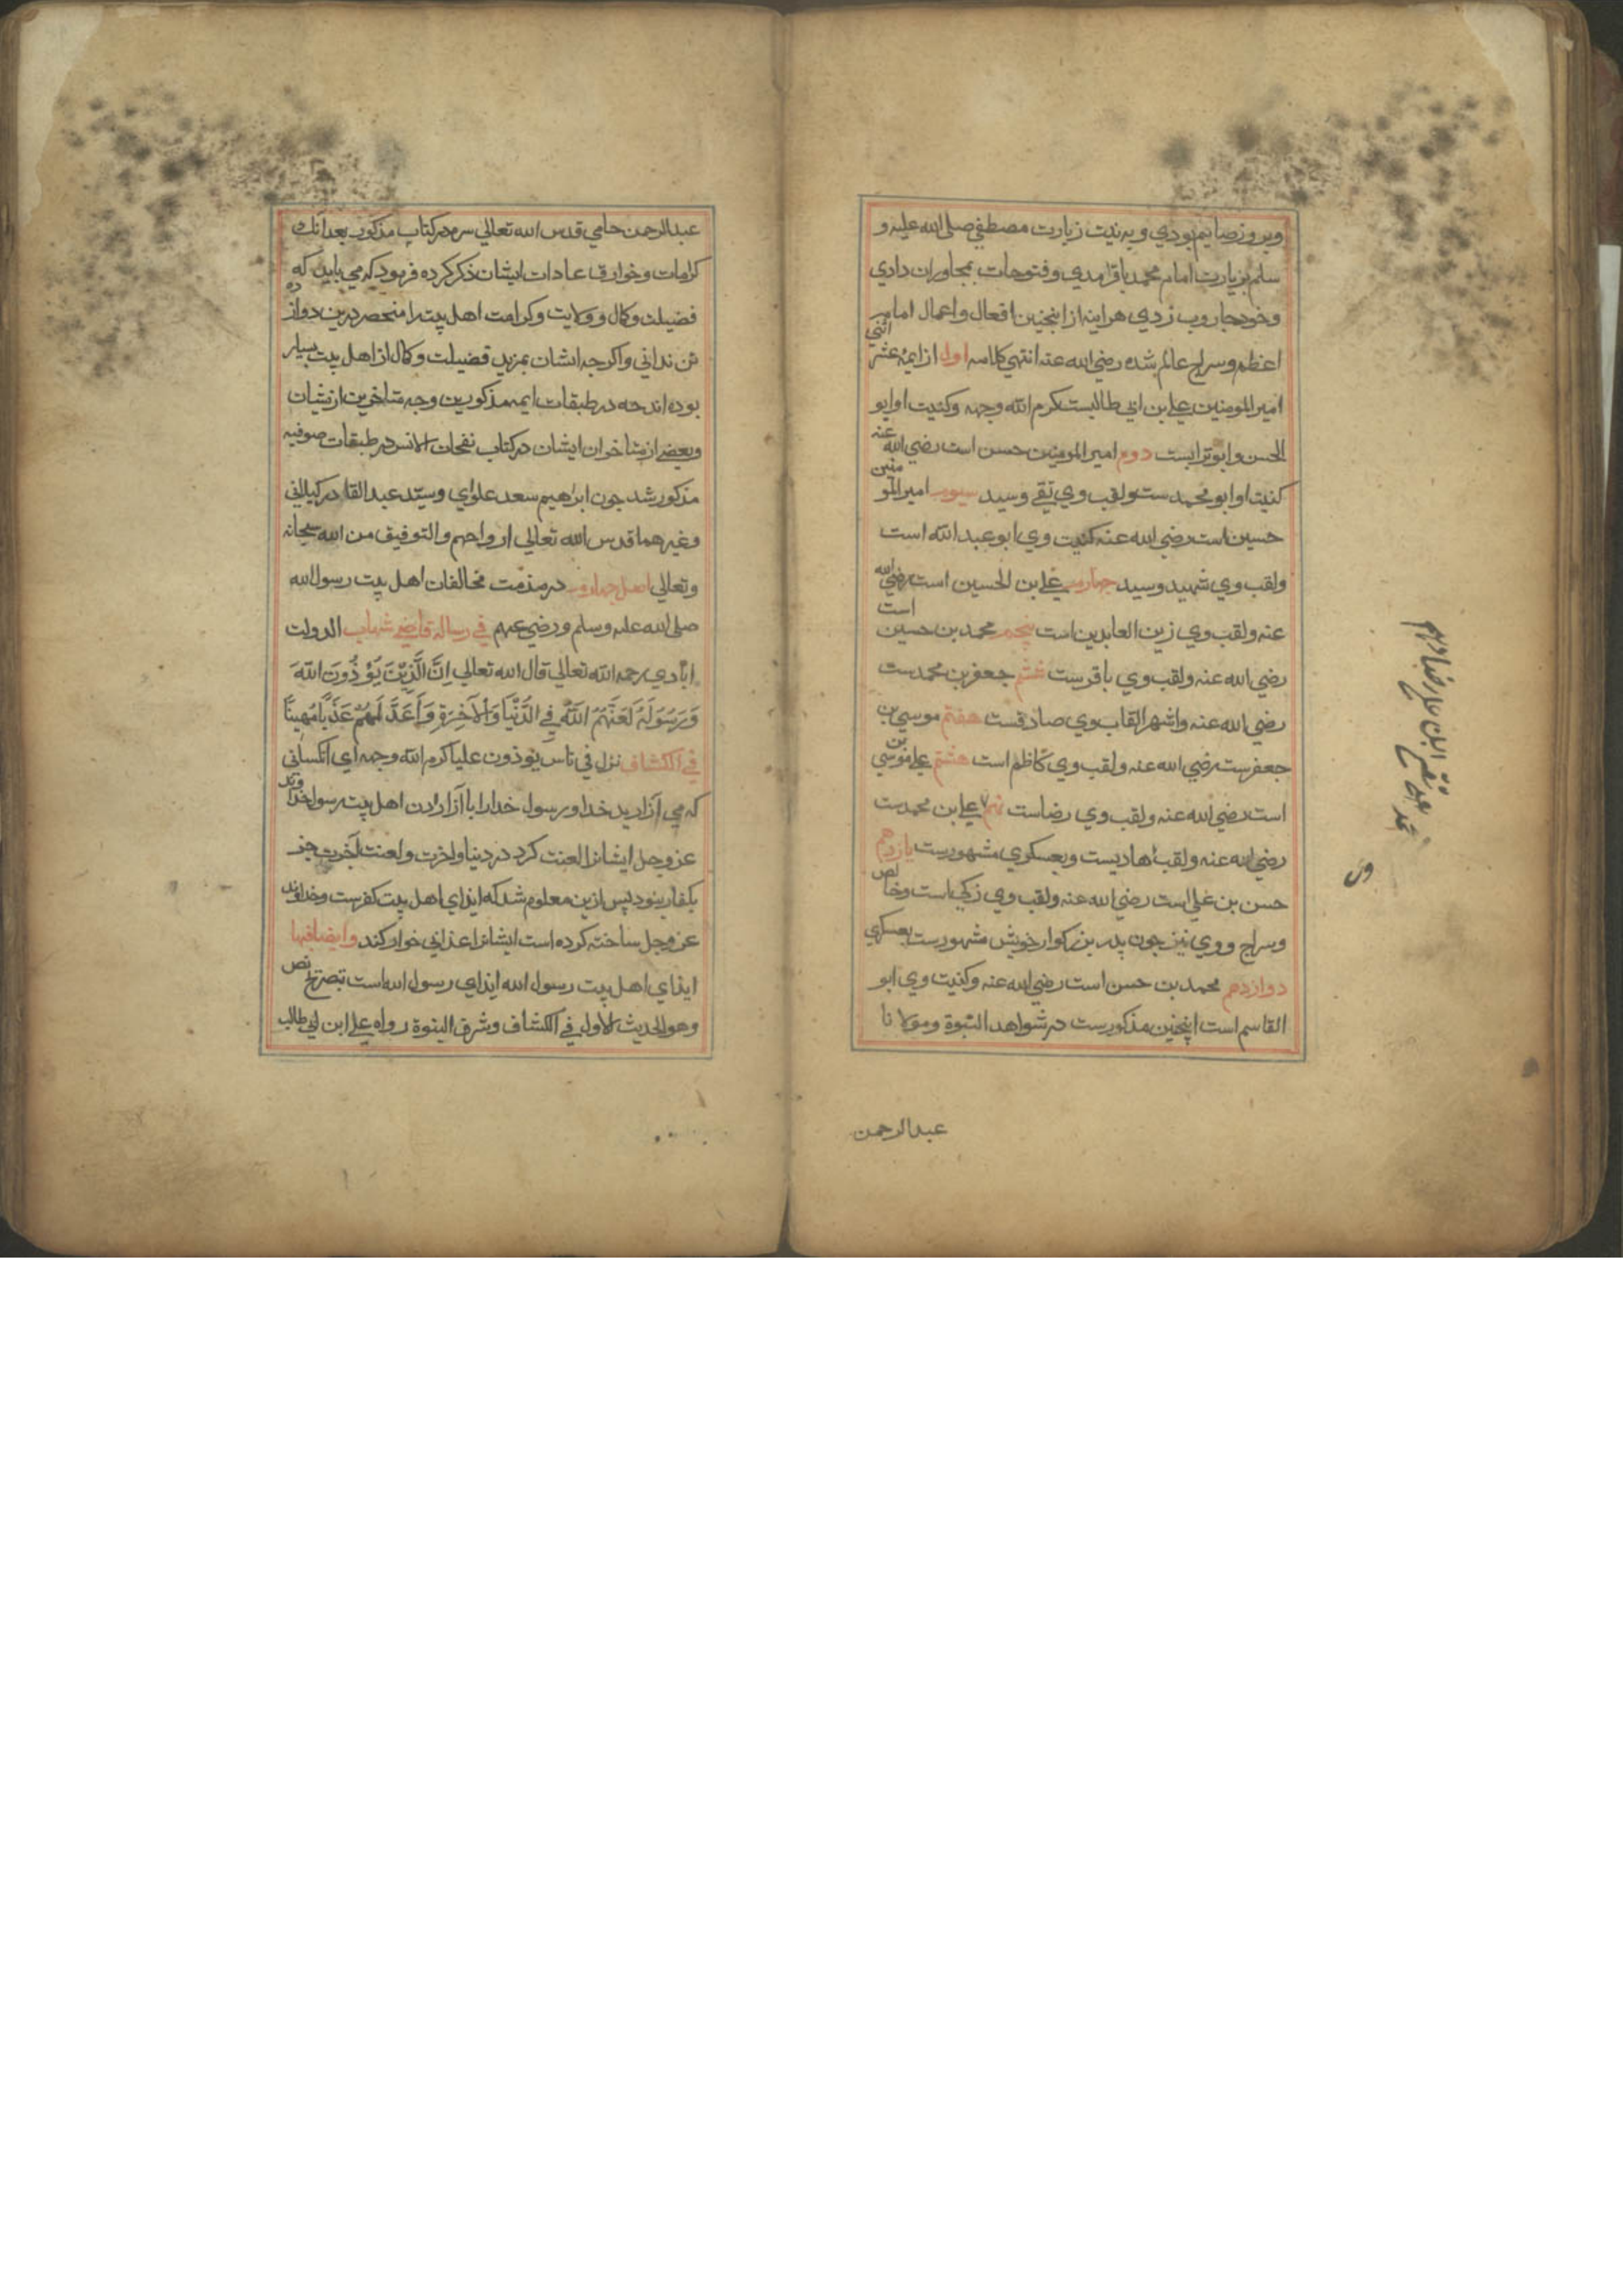 وبروز صایم بودي و به نیت زیارت مصطفی صلی الله علیه و
سلم بزیارت امام محمد باقر امدي وفتوحات بمجاوران دادي
وخود جاروب زدي هراینه از اینچنین افعال واعمال امام
اعظم وسراج عالم شده رضی الله عنه انتهی کلامه اول از ایمهٔ اثني عشر
امیر المومنین علي بن ابي طالبست کرم الله وجهه وکنیت او ابو
الحسن و ابو ترابست دوم امیر المومنین حسن است رضي الله عنه
کنیت او ابو محمد ست ولقب وي تقي وسید سیوم امیر المومنین
حسین است رضي الله عنه کنیت وي ابو عبد الله است
ولقب وي شهید وسید چهارم علي بن الحسین است رضي الله
عنه ولقب وي زین العابدین است پنجم محمد بن حسین است
رضي الله عنه ولقب وي باقر ست ششم جعفر بن محمد ست
رضي الله عنه واشهر القاب وي صادقست هفتم موسي بن
جعفر ست رضي الله عنه ولقب وي کاظم است هشتم علي بن موسي
است رضي الله عنه ولقب وي رضاست نهم ٧ علي بن محمد ست
رضي الله عنه ولقب هادیست وبعسکري مشهورست یازدهم
حسن بن علي است رضي الله عنه ولقب وي زکي است وخالص
وسراج و وي نیز چون پدر بزرکوار خویش مشهورست بعسکري
دوازدهم محمد بن حسن است رضي الله عنه وکنیت وي ابو
القاسم است اینچنین مذکورست در شواهد النبوة ومولانا
عبد الرحمن
عبد الرحمن جامي قدس الله تعالي سره در کتاب مذکور بعد انک
کرامات وخوارق عادات ایشان ذکر کرده فرمود که مي باید که
فضیلت وکمال و ولایت وکرامت اهل بیت را منحصر درین دوازده
تن نداني واکرچه ایشان بمزید فضیلت وکمال از اهل بیت بسیار
بوده اند چه در طبقات ایمه مذکورین وچه متاخرین ازیشان
وبعضي از متاخران ایشان در کتاب نفحات الانس در طبقات صوفیه
مذکور شد چون ابراهیم سعد علواي وسید عبد القادر کیلاني
وغیرهما قدس الله تعالي ارواحهم والتوفیق من الله سبحانه
وتعالي اصل چهارم در مذمت مخالفان اهل بیت رسول الله
صلی الله علیه وسلم ورضي عنهم في رسالة قاضي شهاب الدولت
ابادي رحمه الله تعالي قال الله تعالي اِنَّ الَّذِیْنَ یُؤْذُونَ اللهَ
وَرَسُوْلَهُ لَعَنَهُمُ اللهُ فِي الدُّنْیَا وَالْآخِرَةِ وَاَعَدَّ لَهُمْ عَذَابًا مُهِینًا
في الکشاف نزل في ناس یوذون علیا کرم الله وجهه اي انکساني
که مي آزارید خدا ورسول خدا را با آزاردن اهل بیت رسول خداوند
عز وجل ایشانرا لعنت کرد در دنیا واخرت ولعنت آخرت جز
بکفار نبود پس ازین معلوم شد که ایذاي اهل بیت کفرست وخداوند
عز وجل ساخته کرده است ایشانرا عذابي خوار کند وایضا فیها
ایذاي اهل بیت رسول الله ایذاي رسول الله است بتصریح نص
وهو الحدیث الاول في الکشاف وشرف النبوة رواه علي ابن ابي طالب